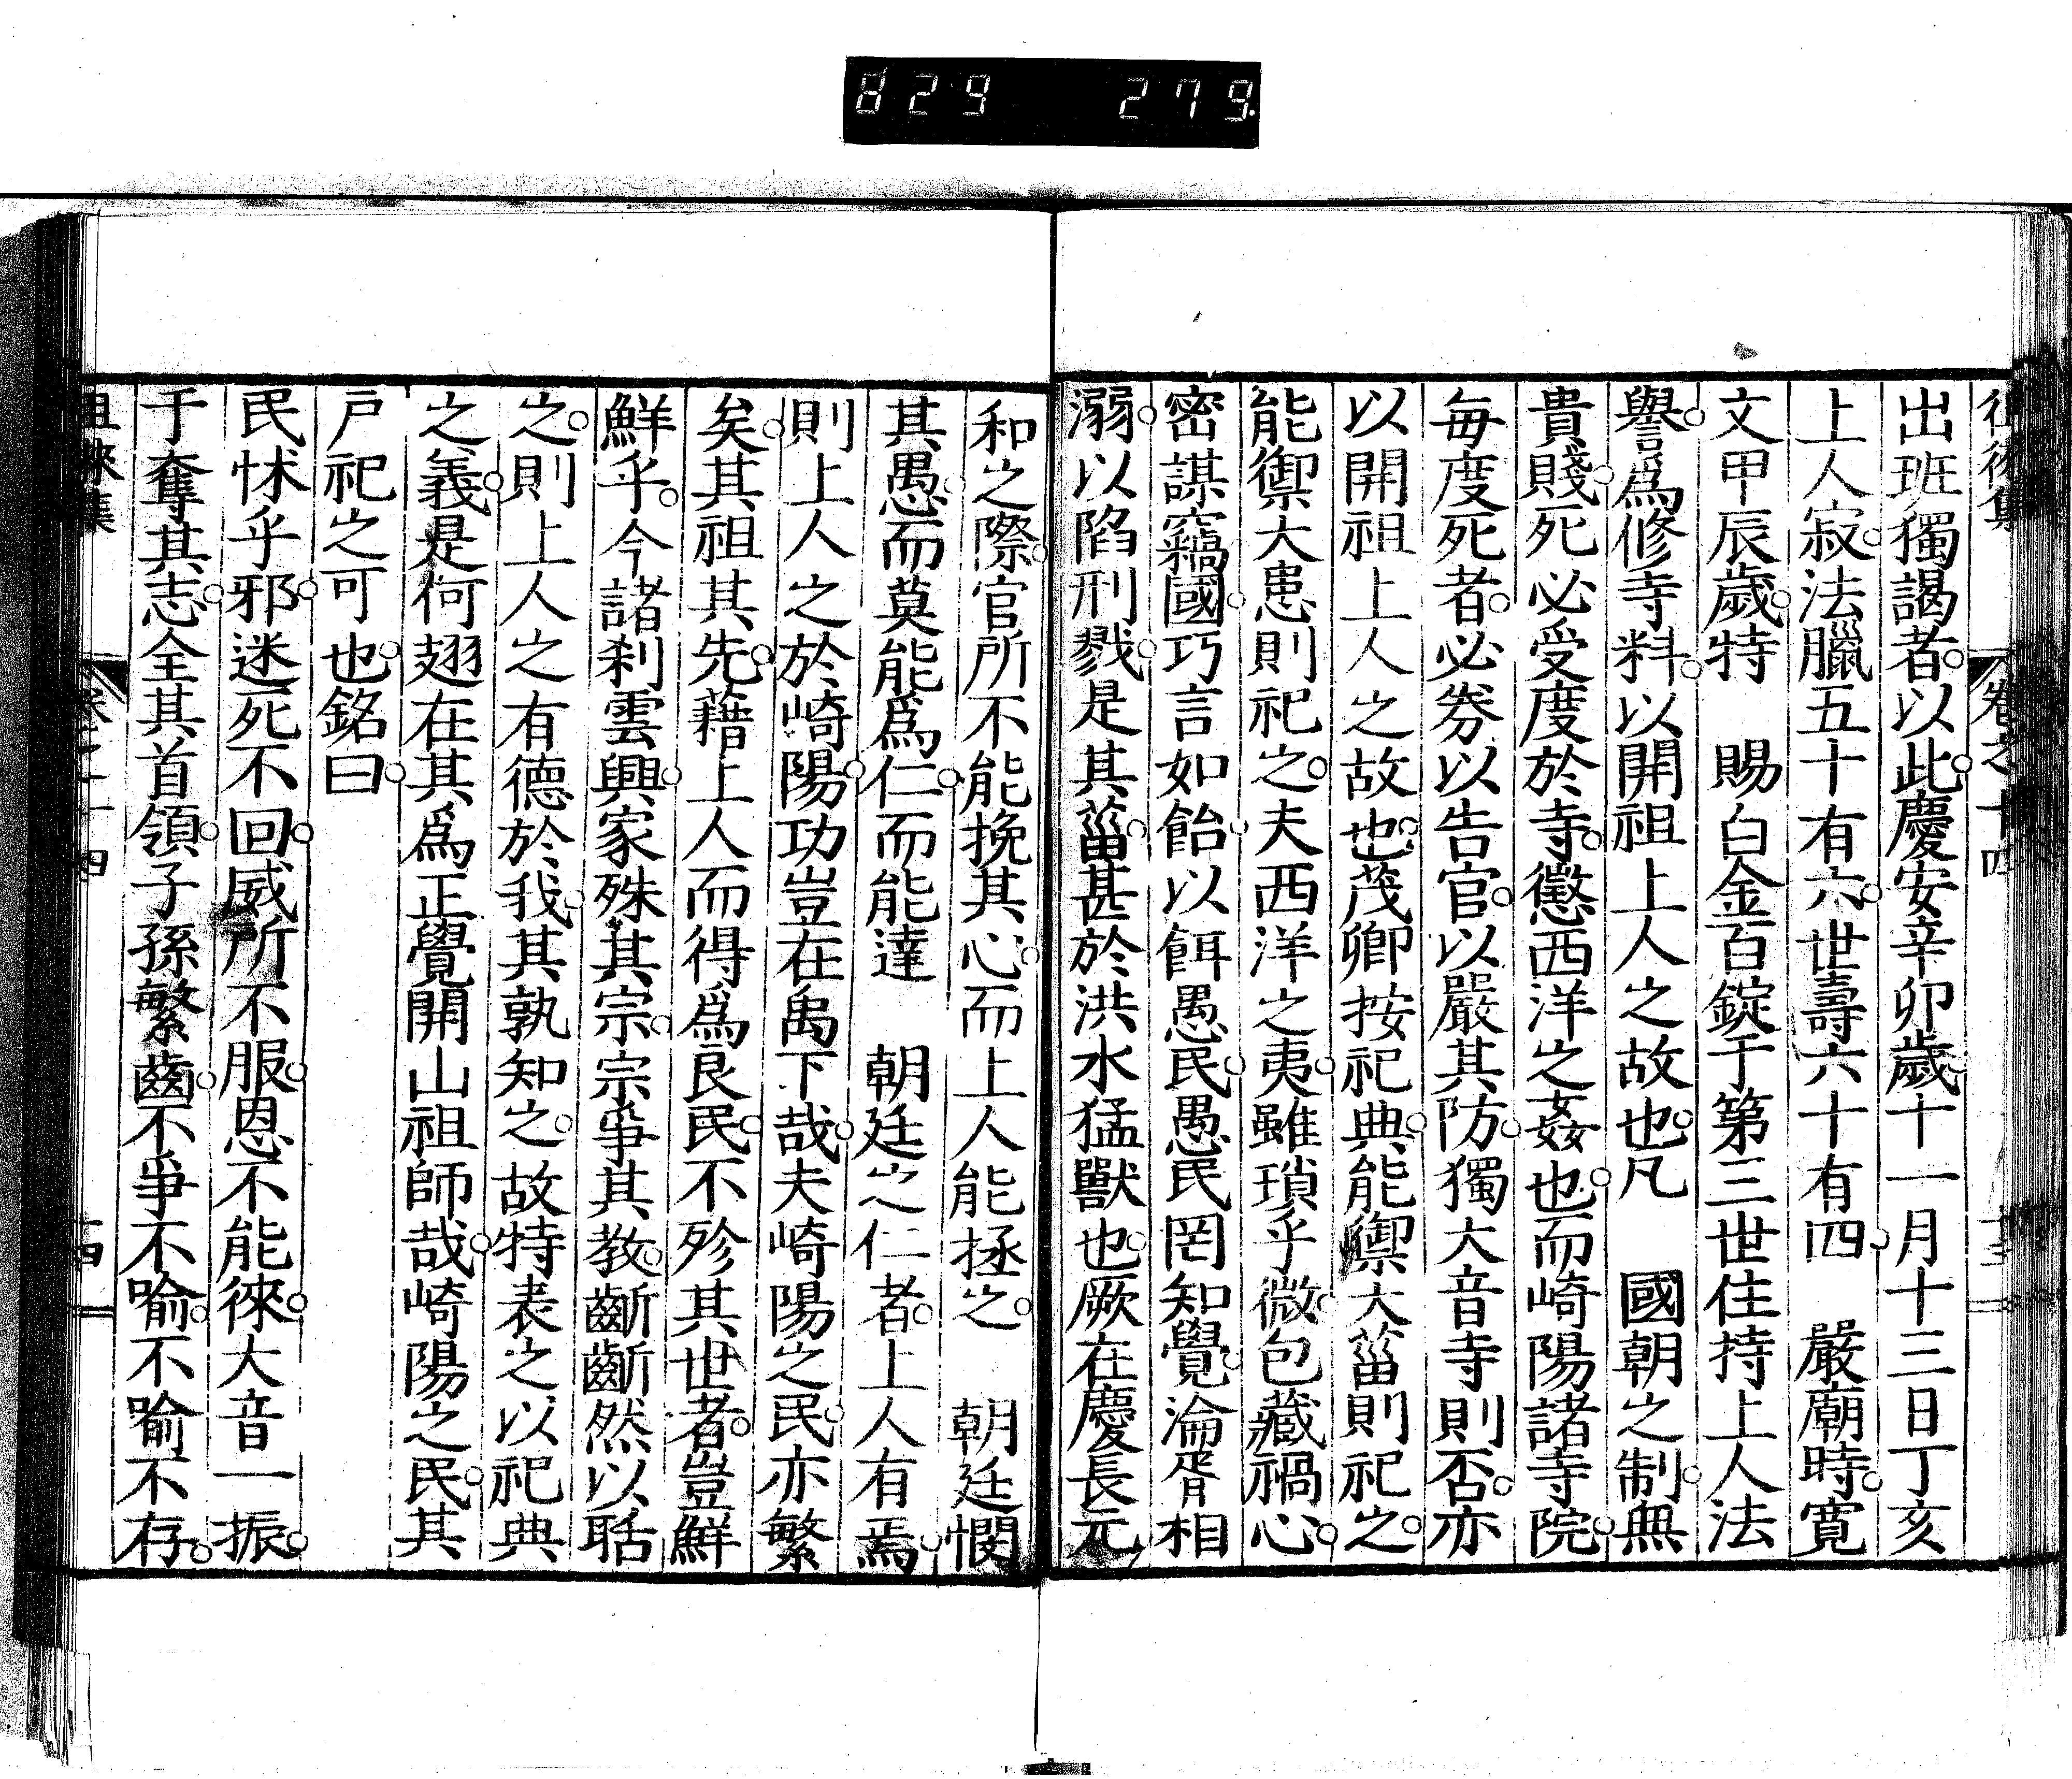 829 279.
出班獨謁者。以此。慶安辛卯歲。十一月十三日丁亥
上人寂。法臘五十有六。世壽六十有四。 嚴廟時。寛
文甲辰歲。特 賜白金百錠于第三世住持上人法
譽。爲修寺料。以開祖上人之故也。凡 國朝之制。無
貴賤。死必受度於寺。懲西洋之姦也。而崎陽諸寺院。
每度死者。必劵以告官。以嚴其防。獨大音寺則否。亦
以開祖上人之故也。茂卿按祀典。能禦大菑則祀之。
能禦大患則祀之。夫西洋之夷。雖瑣乎微。包藏禍心。
密謀竊國。巧言如飴。以餌愚民。愚民罔知覺。淪胥相
溺。以陷刑戮。是其菑。甚於洪水猛獸也。厥在慶長元
和之際。官所不能挽其心。而上人能拯之。 朝廷憫
其愚。而莫能爲仁。而能達 朝廷之仁者。上人有焉。
則上人之於崎陽。功豈在禹下哉。夫崎陽之民。亦繁
矣。其祖其先。藉上人而得爲良民。不殄其世者。豈鮮
鮮乎。今諸刹雲興。家殊其宗。宗爭其教。齗齗然以聒
之。則上人之有德於我。其孰知之。故特表之以祀典
之義。是何翅在其爲正覺開山祖師哉。崎陽之民。其
戸祀之可也。銘曰。
民怵乎邪。迷死不回。威所不服。恩不能徠。大音一振。
于奪其志。全其首領。子孫繁齒。不爭不喻。不喻不存。
徂徠集 卷之十四 十四